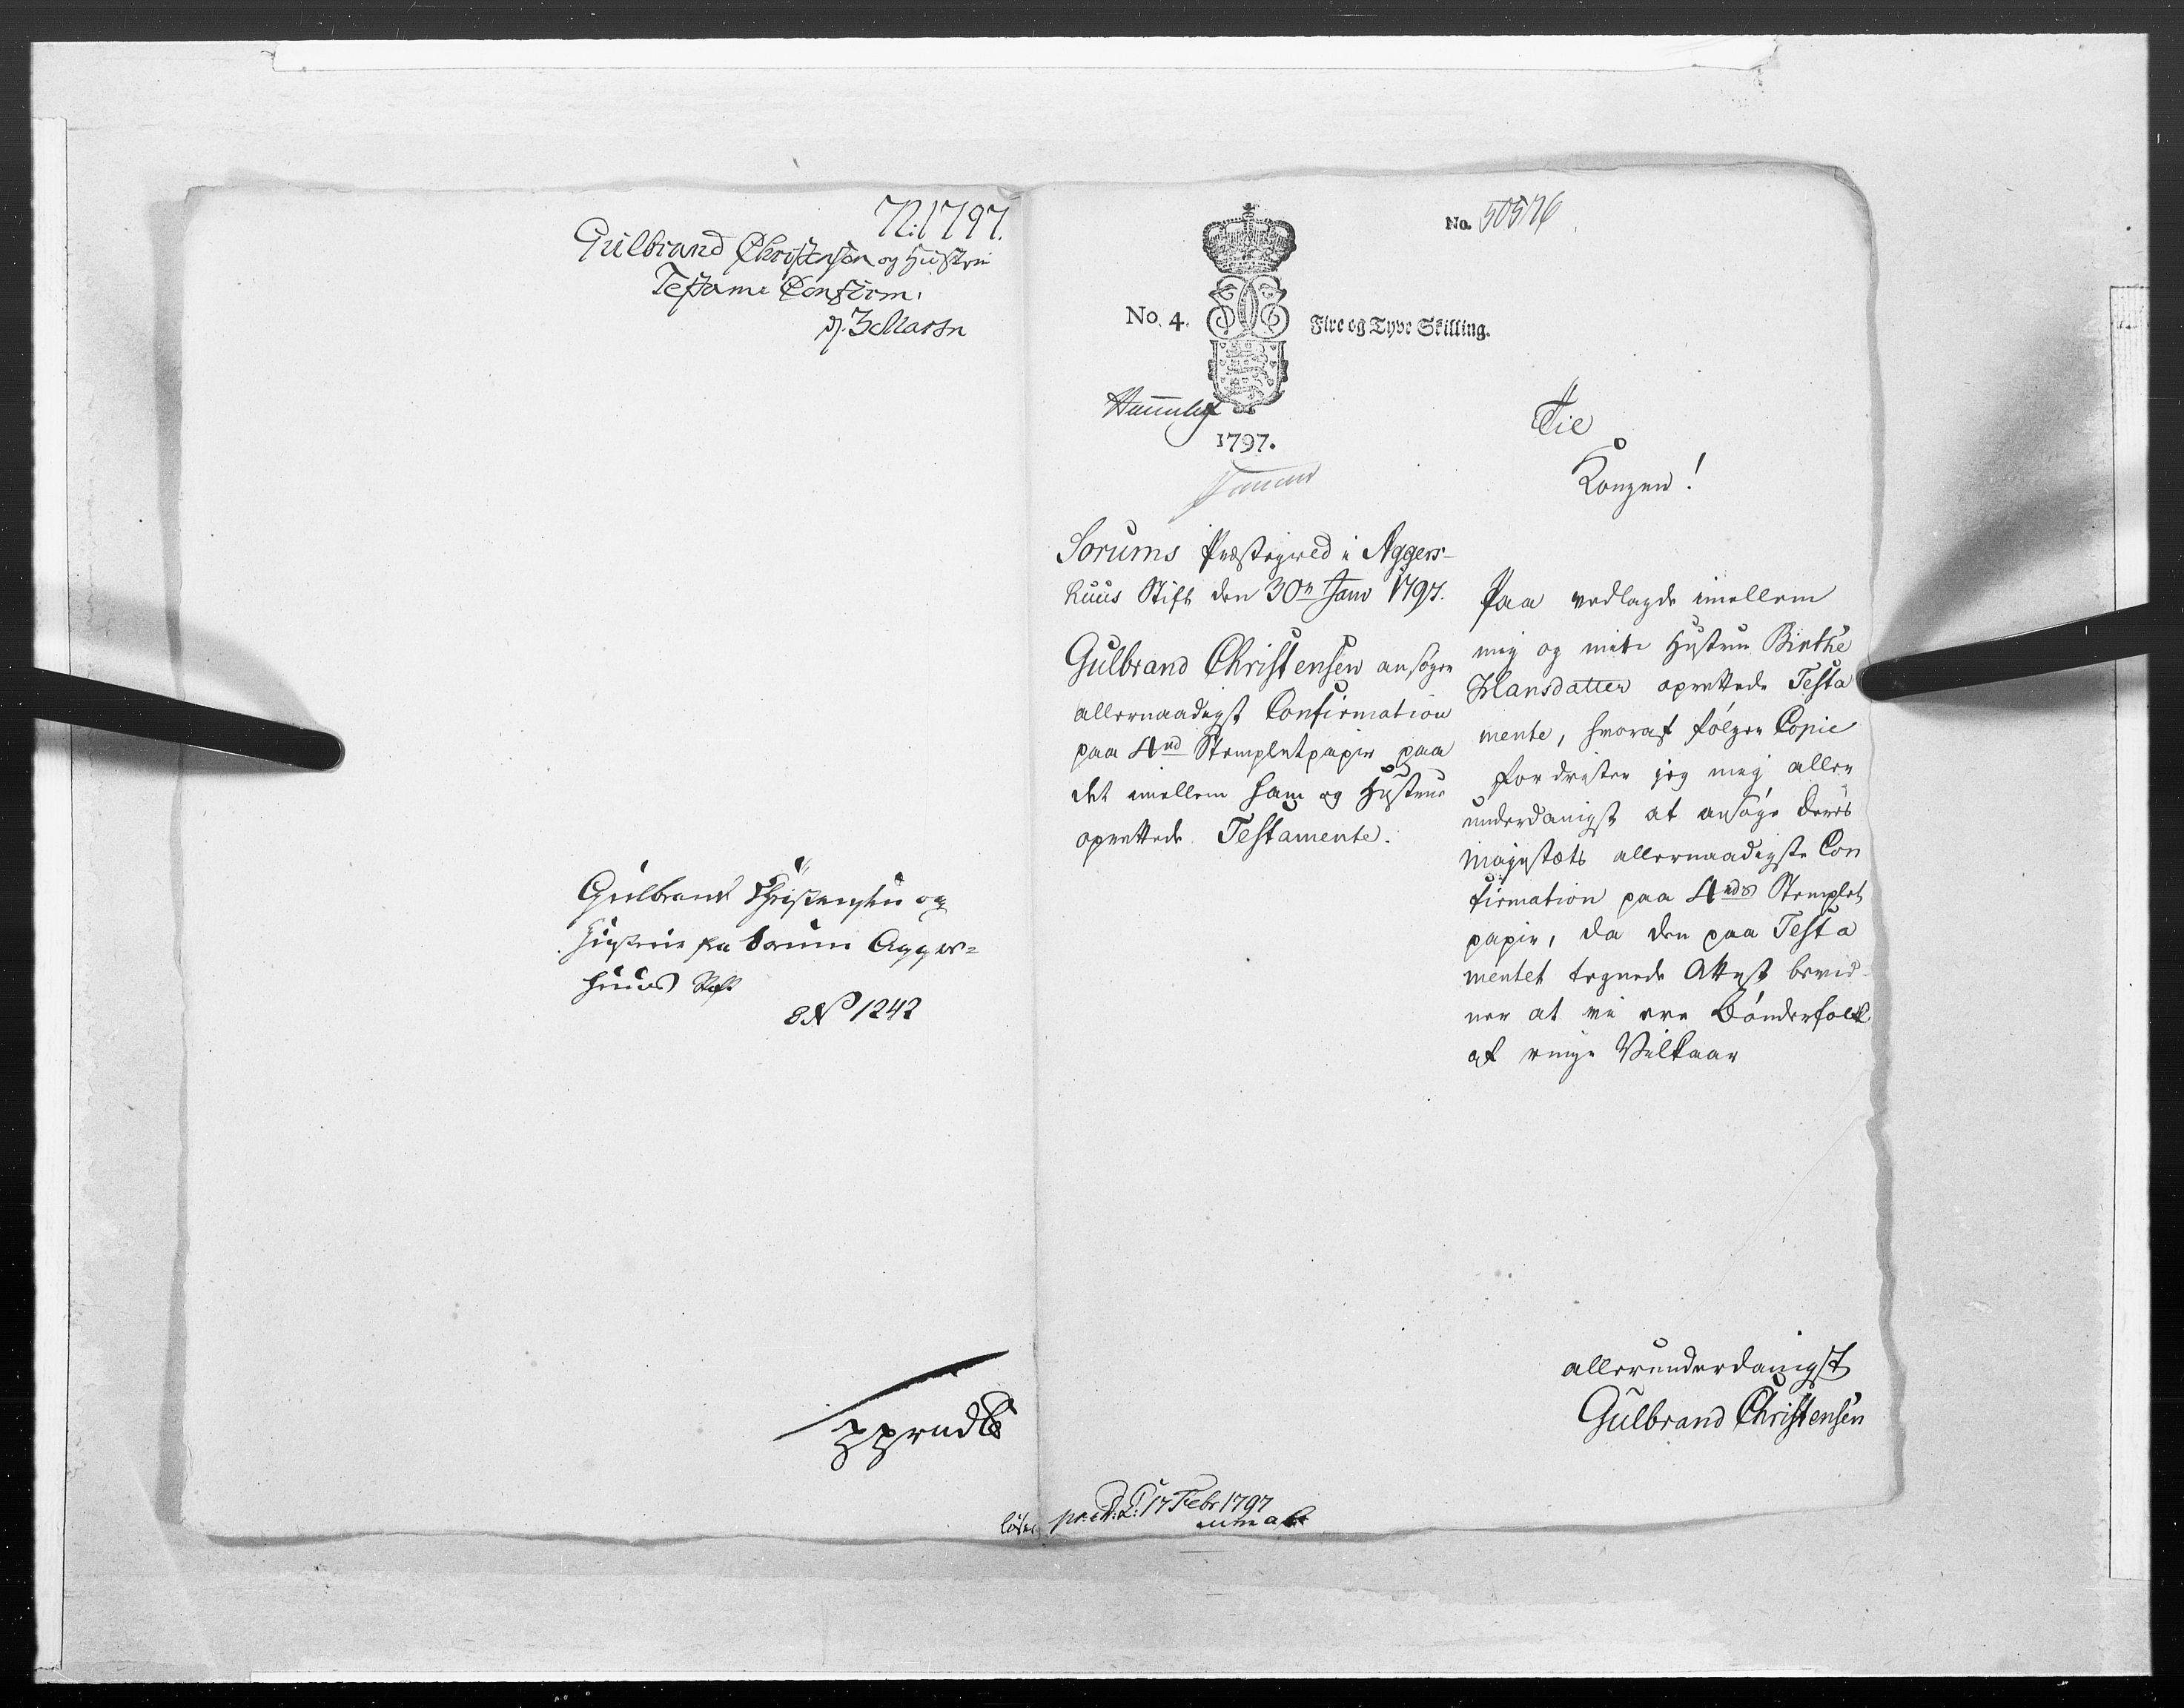 N: 1797.
Gulbrand Christensen og Hustru
Testam: Confirm:
d. 3 Martii
Gulbrand Christensen og
Hustrue fra Sorum Agger=
huus Stift
N 1242
No. 50576
No. 4.
Fire og Tyve Skilling.
1797.
Til
Kongen!
Sorums Præstegield i Aggers-
huus Stift den 30n Janv 1797.
Gulbrand Christensen ansøger
allernaadigst Confirmation
paa 4rd Stempletpapir paa
det imellem ham og Hustrue
oprettede Testamente.
Paa vedlagde imellem
mig og min Hustrue Birthe
Hansdatter oprettede Testa
mente, hvoraf følger Copie
fordrister jeg mig aller
underdanigst at ansøge Deres
Majestæts allernaadigste Con
firmation paa 4rds Stemplet
papir, da den paa Testa
mentet tegnede Attest bevid-
ner at vi ere Bønderfolk
af ringe Vilkaar
allerunderdanigst
Gulbrand Christensen
17 Febr 1797